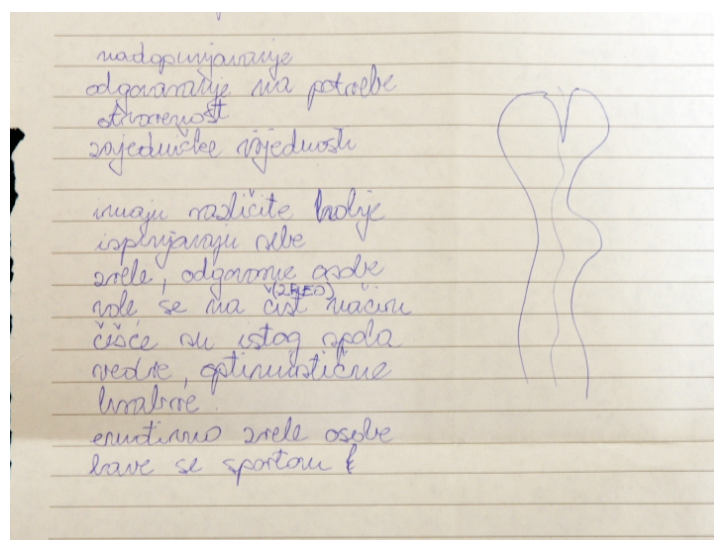 nadopunjavanje
odgovaranje na potrebe
otvorenost
zajedničke vrijednosti
imaju različite hobije
ispunjavaju sebe
zrele, odgovorne osobe
vole se na čist način
češće su istog spola
vedre, optimistične
hrabre
emotivno zrele osobe
bave se sportom